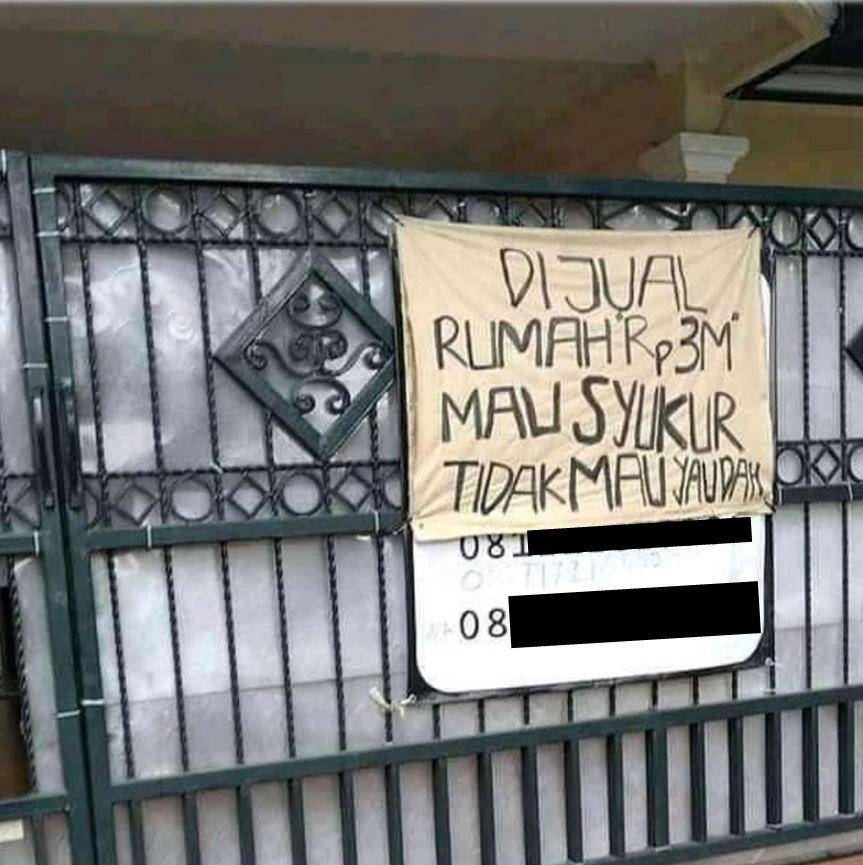 DIJUAL
RUMAH "Rp3M"
MAU SYUKUR
TIDAK MAU YAUDAH
081
08